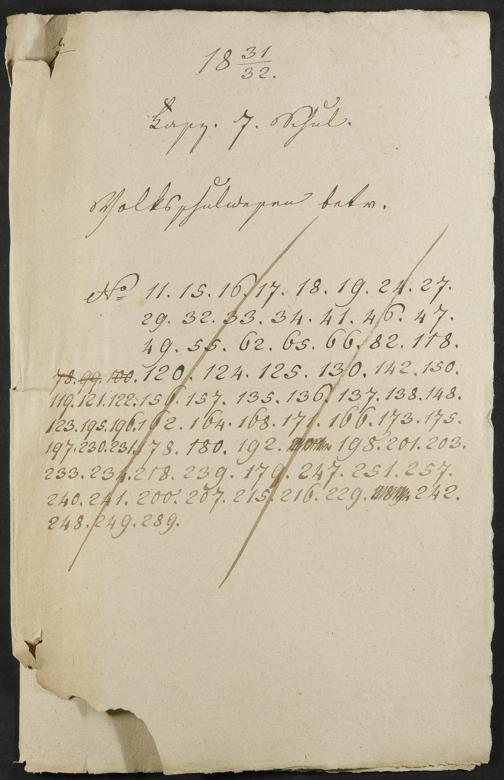 18 31/32.
Kapp. 7. Schul.
Volksschulwesen betr.
No 11. 15. 16. 17. 18. 19. 24. 27.
29. 32. 33. 34. 41. 46. 47.
49. 55. 62. 65. 66. 82. 118.
78. 99. 100. 120. 124. 125. 130. 142. 150.
119. 121. 122. 156. 157. 135. 136. 137. 138. 148.
123. 195. 196. 162. 164. 168. 171. 166. 173. 175.
197. 230. 231. 178. 180. 192. 198. 201. 203.
233. 234. 218. 239. 179. 247. 251. 257.
240. 241. 200. 207. 215. 216. 229. 242.
248. 249. 289.